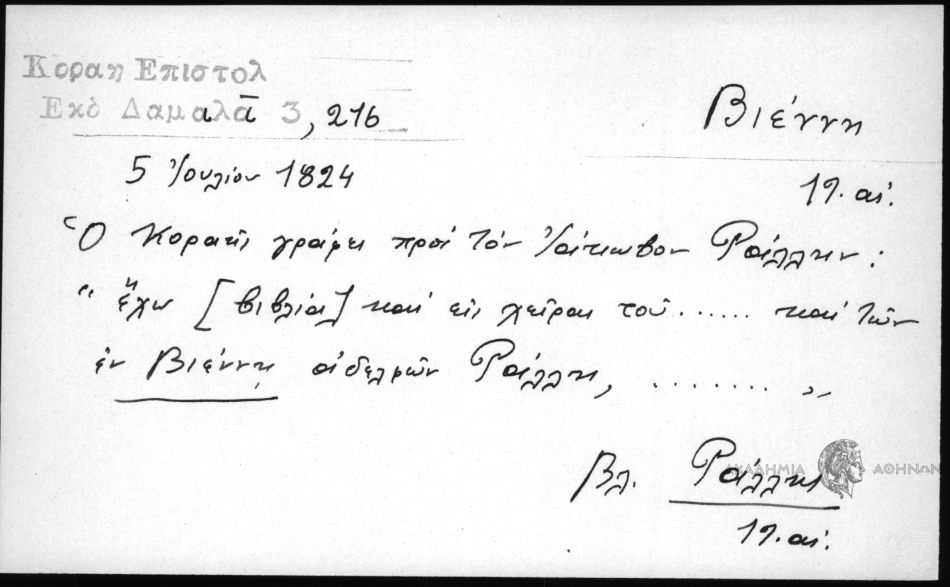 Κοραη Επιστολ
Εκδ Δαμαλά 3, 216
Βιέννη
5 Ἰουλίου 1824
19. αἰ.
Ὁ Κοραῆς γράφει πρὸς τὸν Ἰάκωβον Ράλλην :
" ἔχω [βιβλία] καὶ εἰς χεῖρας τοῦ ...... καὶ τῶν
ἐν Βιέννῃ ἀδελφῶν Ράλλη, ........ "
Βλ. Ράλλης
ΑΚΑΔΗΜΙΑ ΑΘΗΝΩΝ
19. αἰ.